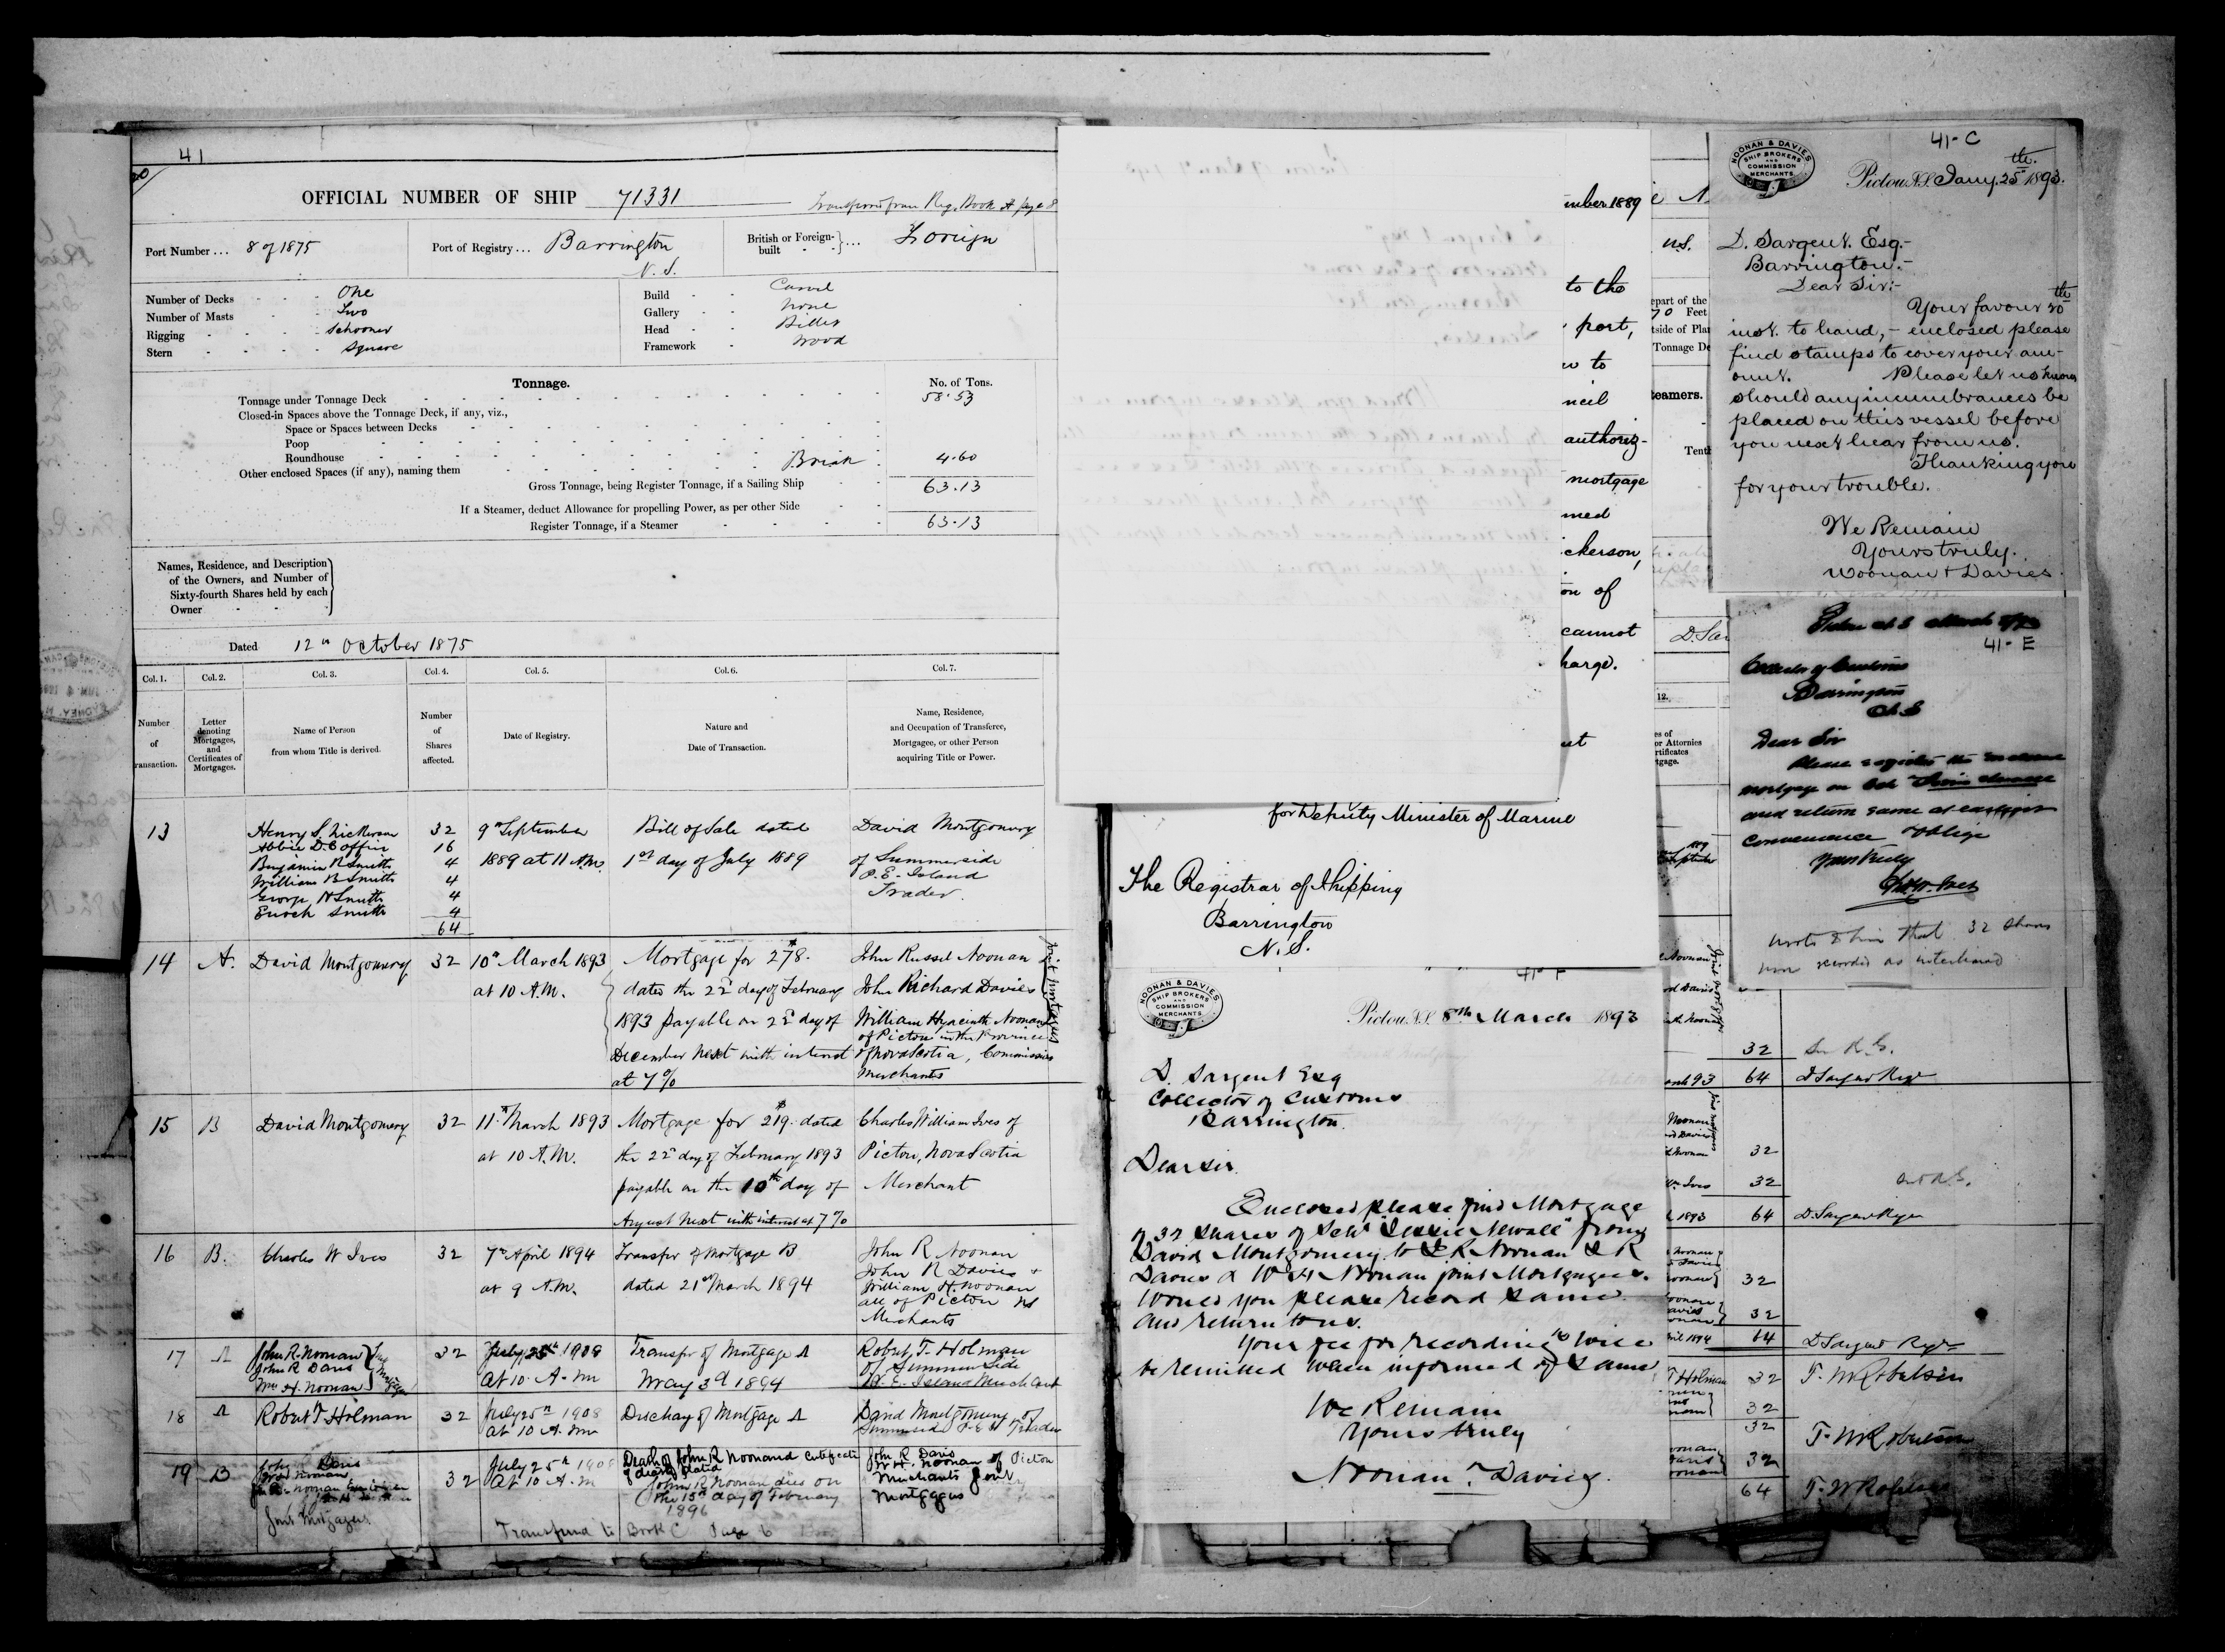 41
20
OFFICIAL NUMBER OF SHIP 71331
from Reg. Book A page 8
Port Number ... 8 of 1875
Port of Registry ... Barrington
N. S.
British or Foreign-built ... Foreign
Number of Decks - - One
Number of Masts - - Two
Rigging - - - Schooner
Stern - - - Square
Build - - Carvel
Gallery - - None
Head - - Billet
Framework - Wood
Tonnage.
No. of Tons.
Tonnage under Tonnage Deck 58.53
Closed-in Spaces above the Tonnage Deck, if any, viz.,
Space or Spaces between Decks
Poop
Roundhouse
Other enclosed Spaces (if any), naming them Break 4.60
Gross Tonnage, being Register Tonnage, if a Sailing Ship 63.13
If a Steamer, deduct Allowance for propelling Power, as per other Side
Register Tonnage, if a Steamer 63.13
Names, Residence, and Description
of the Owners, and Number of
Sixty-fourth Shares held by each
Owner
Dated 12th October 1875
Col. 1. Col. 2. Col. 3. Col. 4. Col. 5. Col. 6. Col. 7.
Number
of
ransaction.
Letter
denoting
Mortgages,
and
Certificates of
Mortgages.
Name of Person
from whom Title is derived.
Number
of
Shares
affected.
Date of Registry.
Nature and
Date of Transaction.
Name, Residence,
and Occupation of Transferee,
Mortgagee, or other Person
acquiring Title or Power.
13
Henry S. Nickerson 32
Abbie D. Coffin 16
Benjamin R Smith 4
William B Smith 4
George H Smith 4
Enoch Smith 4
64
9th September
1889 at 11 A.M.
Bill of Sale dated
1st day of July 1889
David Montgomery
of Summerside
P. E. Island
Trader.
14 A. David Montgomery 32
10th March 1893
at 10 A.M.
Mortgage for $278.
dated the 22d day of February
1893 payable on 22d day of
December next with interest
at 7%
John Russel Noonan
John Richard Davies
William Hyacinth Noonan
of Pictou in the Province
of Nova Scotia, Commission
Merchants
15 B David Montgomery 32
11th March 1893
at 10 A.M.
Mortgage for $219. dated
the 22d day of February 1893
payable on the 10th day of
August next with interest at 7%
Charles William Ives of
Pictou, Nova Scotia
Merchant
16 B. Charles W Ives 32
7th April 1894
at 9 A.M.
Transfer of Mortgage B
dated 21st March 1894
John R Noonan
John R Davies &
William H. Noonan
all of Pictou NS
Merchants
17 A
John R. Noonan
John R. Davis
Wm H. Noonan
32
July 25th 1908
At 10 A.M
Transfer of Mortgage A
May 3d 1894
Robert T. Holman
of Summerside
P. E. Island Merchant
18 A Robert T Holman 32
July 25th 1908
at 10 A.M
Discharge of Mortgage A
David Montgomery of
Summerside P.E.I Trader
19 B
Joint Mortgagees
32
July 25th 1908
At 10 A.M
Death of John R Noonan
John R Noonan died on
the 15th day of February
1896
John R. Davis
W H. Noonan of Pictou
Merchants Joint
Mortgagees
Transferred to Book C Page 6
mber 1889
to the
port,
w to
ncil
authoriz-
mortgage
med
ckerson,
on of
cannot
harge.
for Deputy Minister of Marine
The Registrar of Shipping
Barrington
N. S.
41-F
NOONAN & DAVIES
SHIP BROKERS
AND
COMMISSION
MERCHANTS
Pictou N.S. 8th March 1893
D. Sargent Esq
Collector of Customs
Barrington.
Dear sir.
Enclosed please find Mortgage
of 32 shares of Schr "Lessie Newall" from
David Montgomery to J R Noonan J R
Davies & W H Noonan joint Mortgagees.
Would you please record same
and return to us.
Your fee for recording will
be remitted when informed of same
We Remain
Yours truly
Noonan & Davies.
41-C
NOONAN & DAVIES
SHIP BROKERS
AND
COMMISSION
MERCHANTS
Pictou N.S. Jany. 25th 1893.
D. Sargent. Esq.-
Barrington.-
Dear Sir:-
Your favour 20th
inst. to hand, - enclosed please
find stamps to cover your am-
ount. Please let us know
should any incumbrances be
placed on this vessel before
you next hear from us.
Thanking you
for your trouble.
We Remain
Yours truly.
Noonan & Davies.
41-E
Collector of Customs
Barrington
N S
Dear Sir
Please register the enclosed
mortgage on Sch
and return same at earliest
convenience & oblige
Yours truly
Wrote to him that 32 shares
was recorded as
N.S.
epart of the
70 Feet
tside of Pla
Tonnage De
teamers.
Tenth
D. Sar
12.
es of
or Attornies
rtificates
tgage.
32
64 D Sargent Regr
32
32
1893 64 D. Sargent Regr
32
32
ril 1894 64 D Sargent Regr
T Holman 32 T. W Robertson
32
32 T. W Robertson
32
64 T. W Robertson